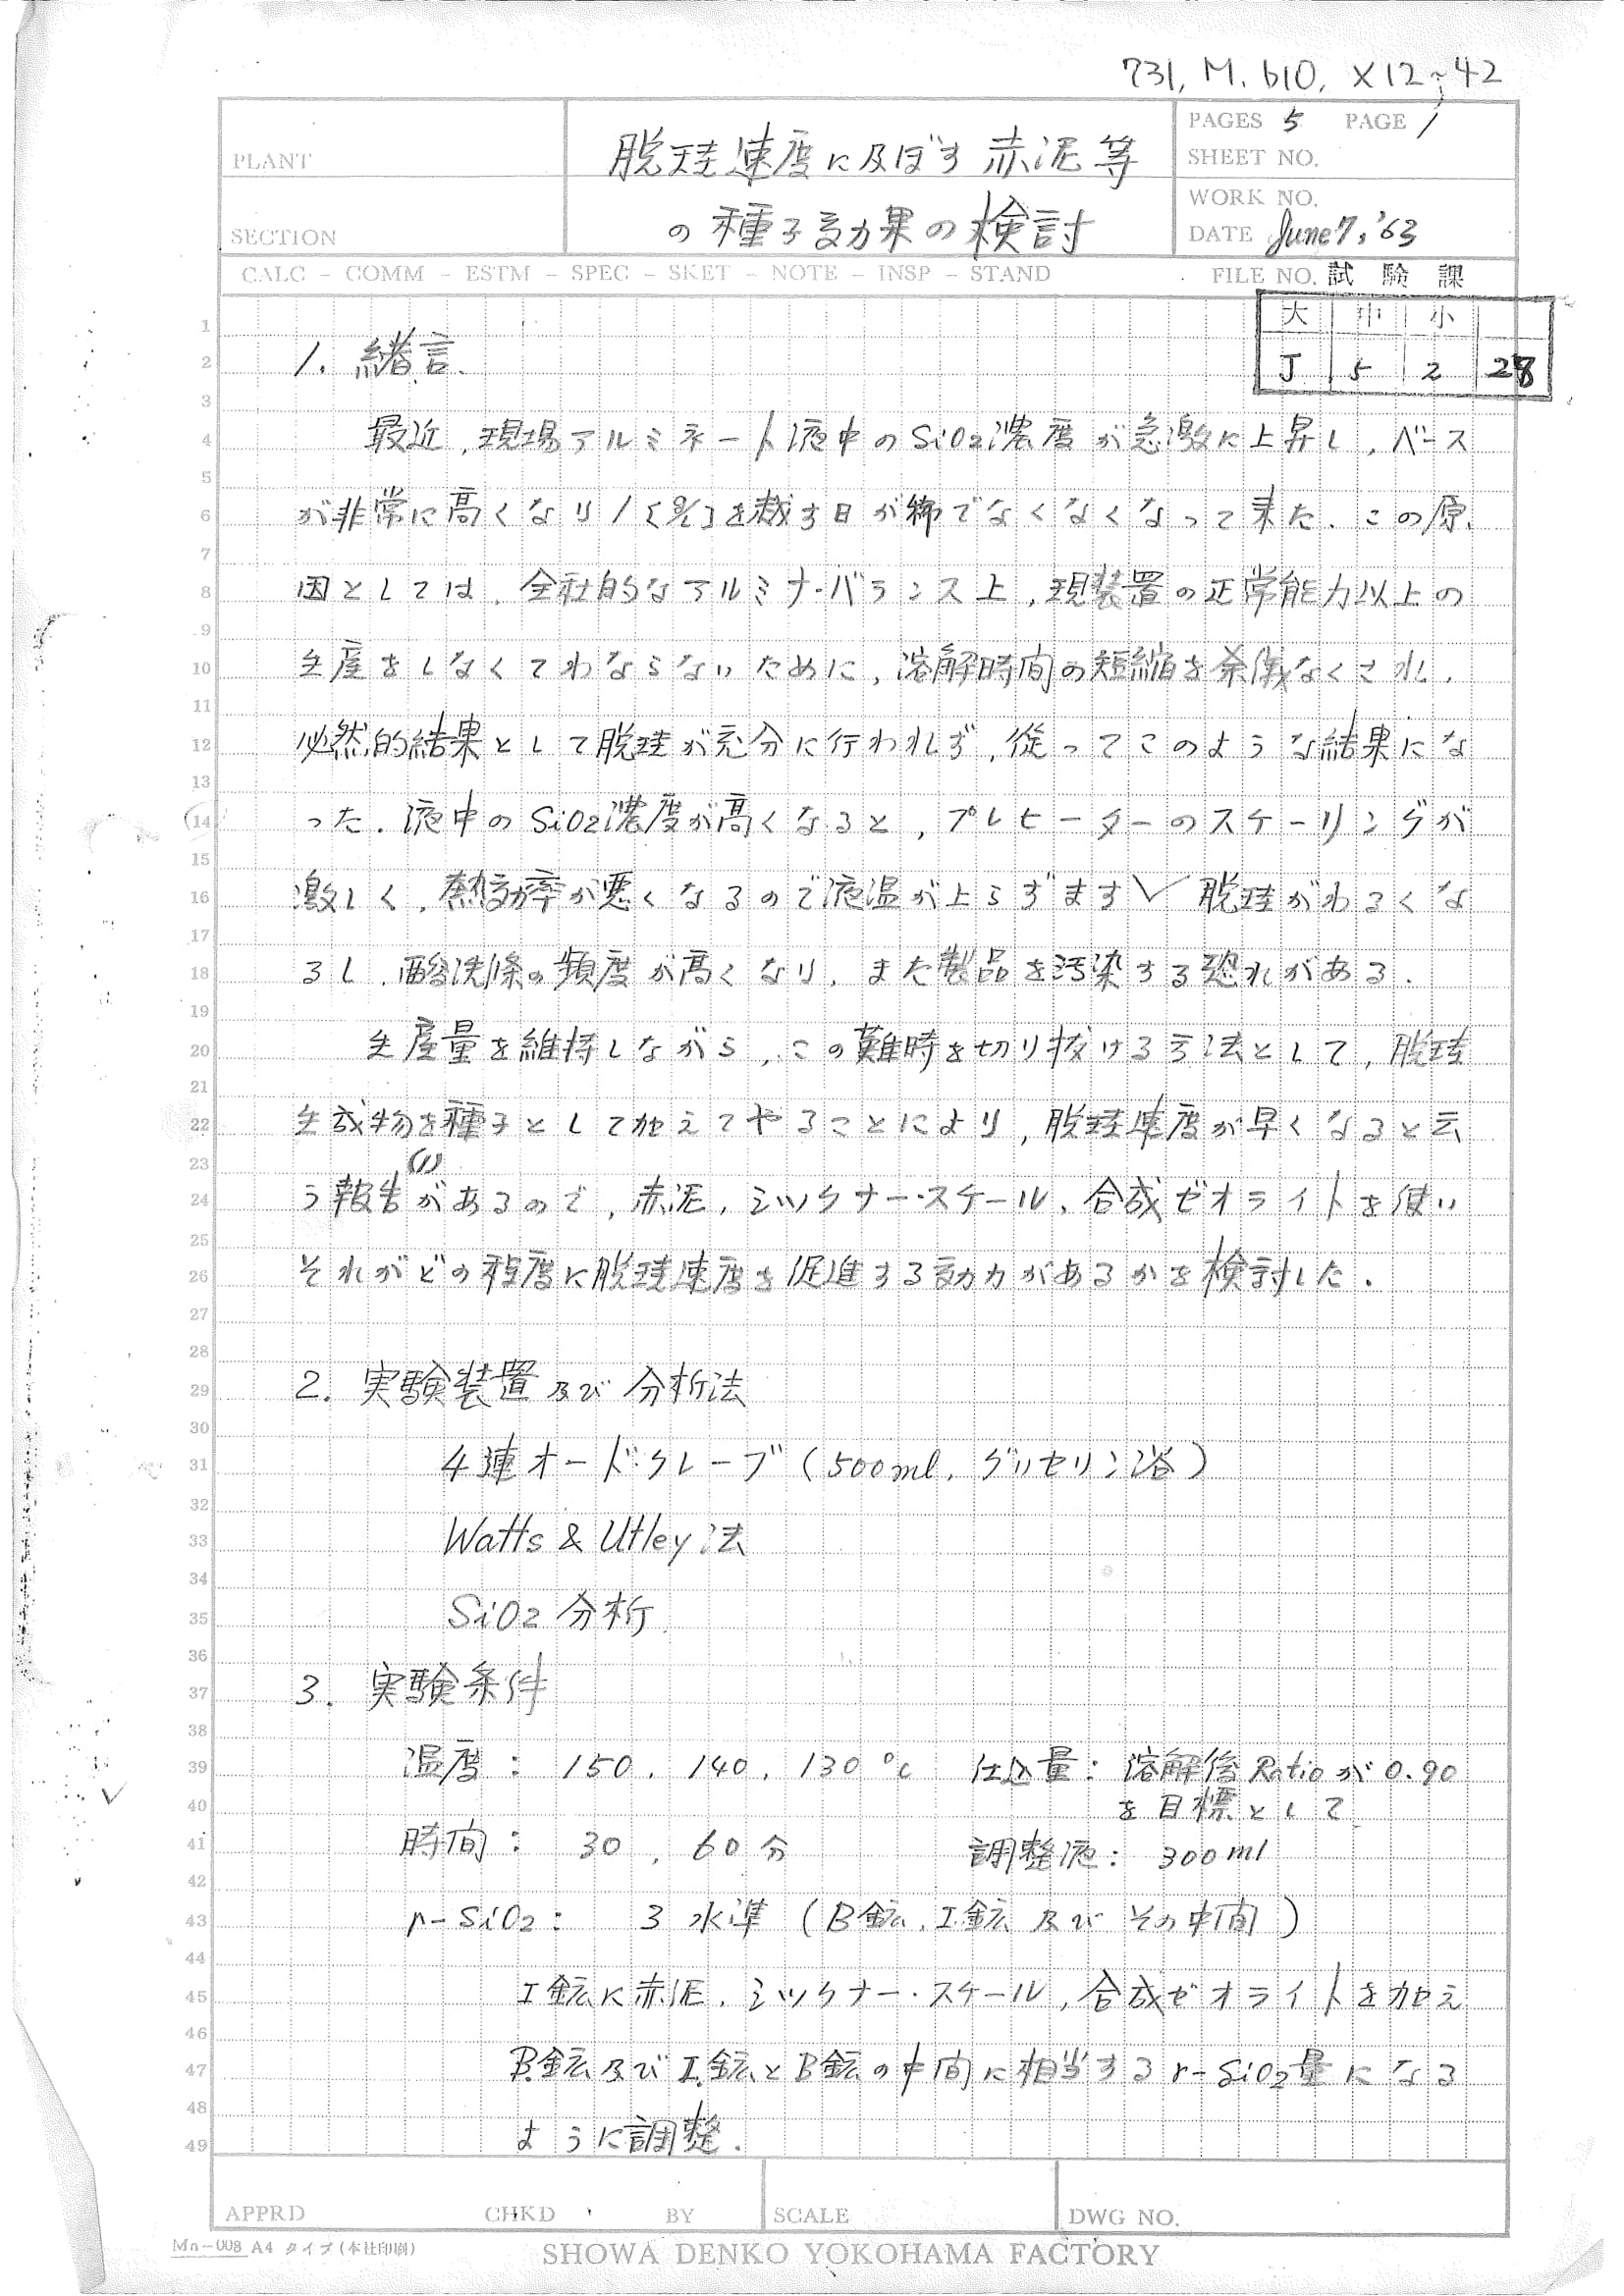 731, M. 610, X12~42
PLANT
SECTION
脱珪速度に及ぼす赤泥等
の種子効果の検討
PAGES 5 PAGE 1
SHEET NO.
WORK NO.
DATE June 7, '63
CALC - COMM - ESTM - SPEC - SKET - NOTE - INSP - STAND
FILE NO. 試験課
大 中 小
J 5 2 28
1. 緒言.
最近, 現場アルミネート液中のSiO2濃度が急激に上昇し, ベース
が非常に高くなり 1[g/l]を裁す日が稀でなくなくなって来た. この原
因としては, 全社的なアルミナ・バランス上, 現装置の正常能力以上の
生産をしなくてわならないために, 溶解時間の短縮を余儀なくされ,
必然的結果として脱珪が充分に行われず, 従ってこのような結果にな
った. 液中のSiO2濃度が高くなると, プレヒーターのスケーリングが
激しく, 熱効率が悪くなるので液温が上らずます✓脱珪がわるくな
るし, 酸洗滌の頻度が高くなり, また製品を汚染する恐れがある.
生産量を維持しながら, この難時を切り抜ける方法として, 脱珪
生成物を種子として加えてやることにより, 脱珪速度が早くなると云
(1)
う報告があるので, 赤泥, ミックナー・スケール, 合成ゼオライトを使い
それがどの程度に脱珪速度を促進する効力があるかを検討した.
2. 実験装置及び分析法
4連オードクレーブ (500ml, グリセリン浴)
Watts & Utley法
SiO2分析
3. 実験条件
温度: 150, 140, 130℃ 仕込量: 溶解後Ratioが0.90
を目標として
時間: 30, 60分 調整液: 300ml
r-SiO2: 3水準 (B鉱, I鉱 及び その中間)
I鉱に赤泥, ミックナー・スケール, 合成ゼオライトを加え
B鉱及びI鉱とB鉱の中間に相当するr-SiO2量になる
ように調整.
APPRD CHKD BY SCALE DWG NO.
Mn-008 A4 タイプ(本社印刷)
SHOWA DENKO YOKOHAMA FACTORY